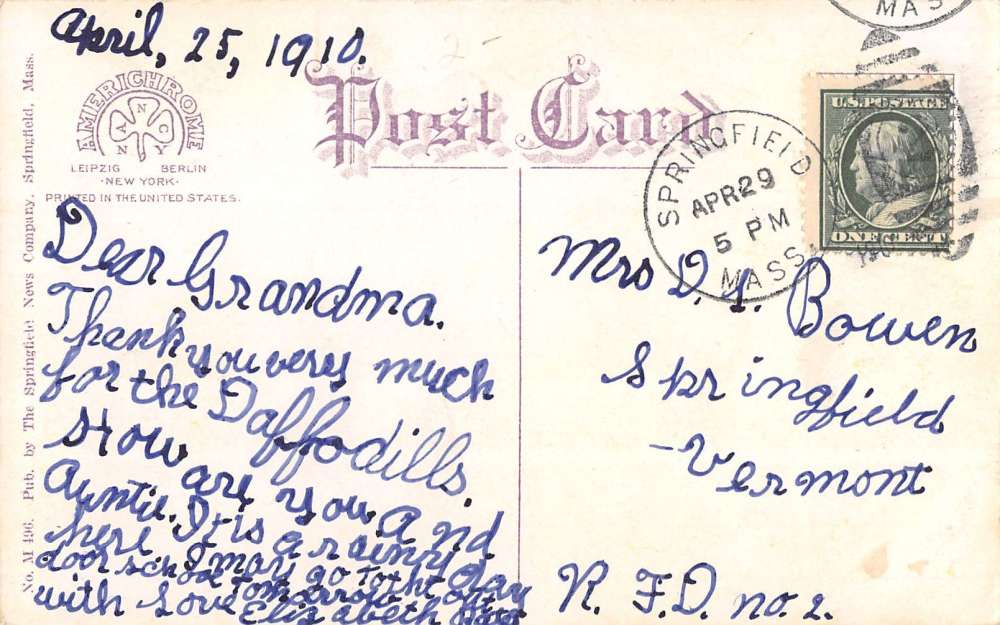 April, 25, 1910.
AMERICHROME
N
A C
N Y
LEIPZIG BERLIN
·NEW YORK·
PRINTED IN THE UNITED STATES.
Post Card
No. M 496. Pub. by The Springfield News Company, Springfield, Mass.
MAS
U.S. POSTAGE
ONE CENT
SPRINGFIELD
APR 29
5 PM
MASS.
Dear Grandma.
Thank you very much
for the Daffodills.
How are you. And
Auntie. It is a rainy day
here I may go to the out
door school tomorrow
with love Elizabeth
Mrs D. A. Bowen
Springfield
-Vermont
R. F.D. no. 2.